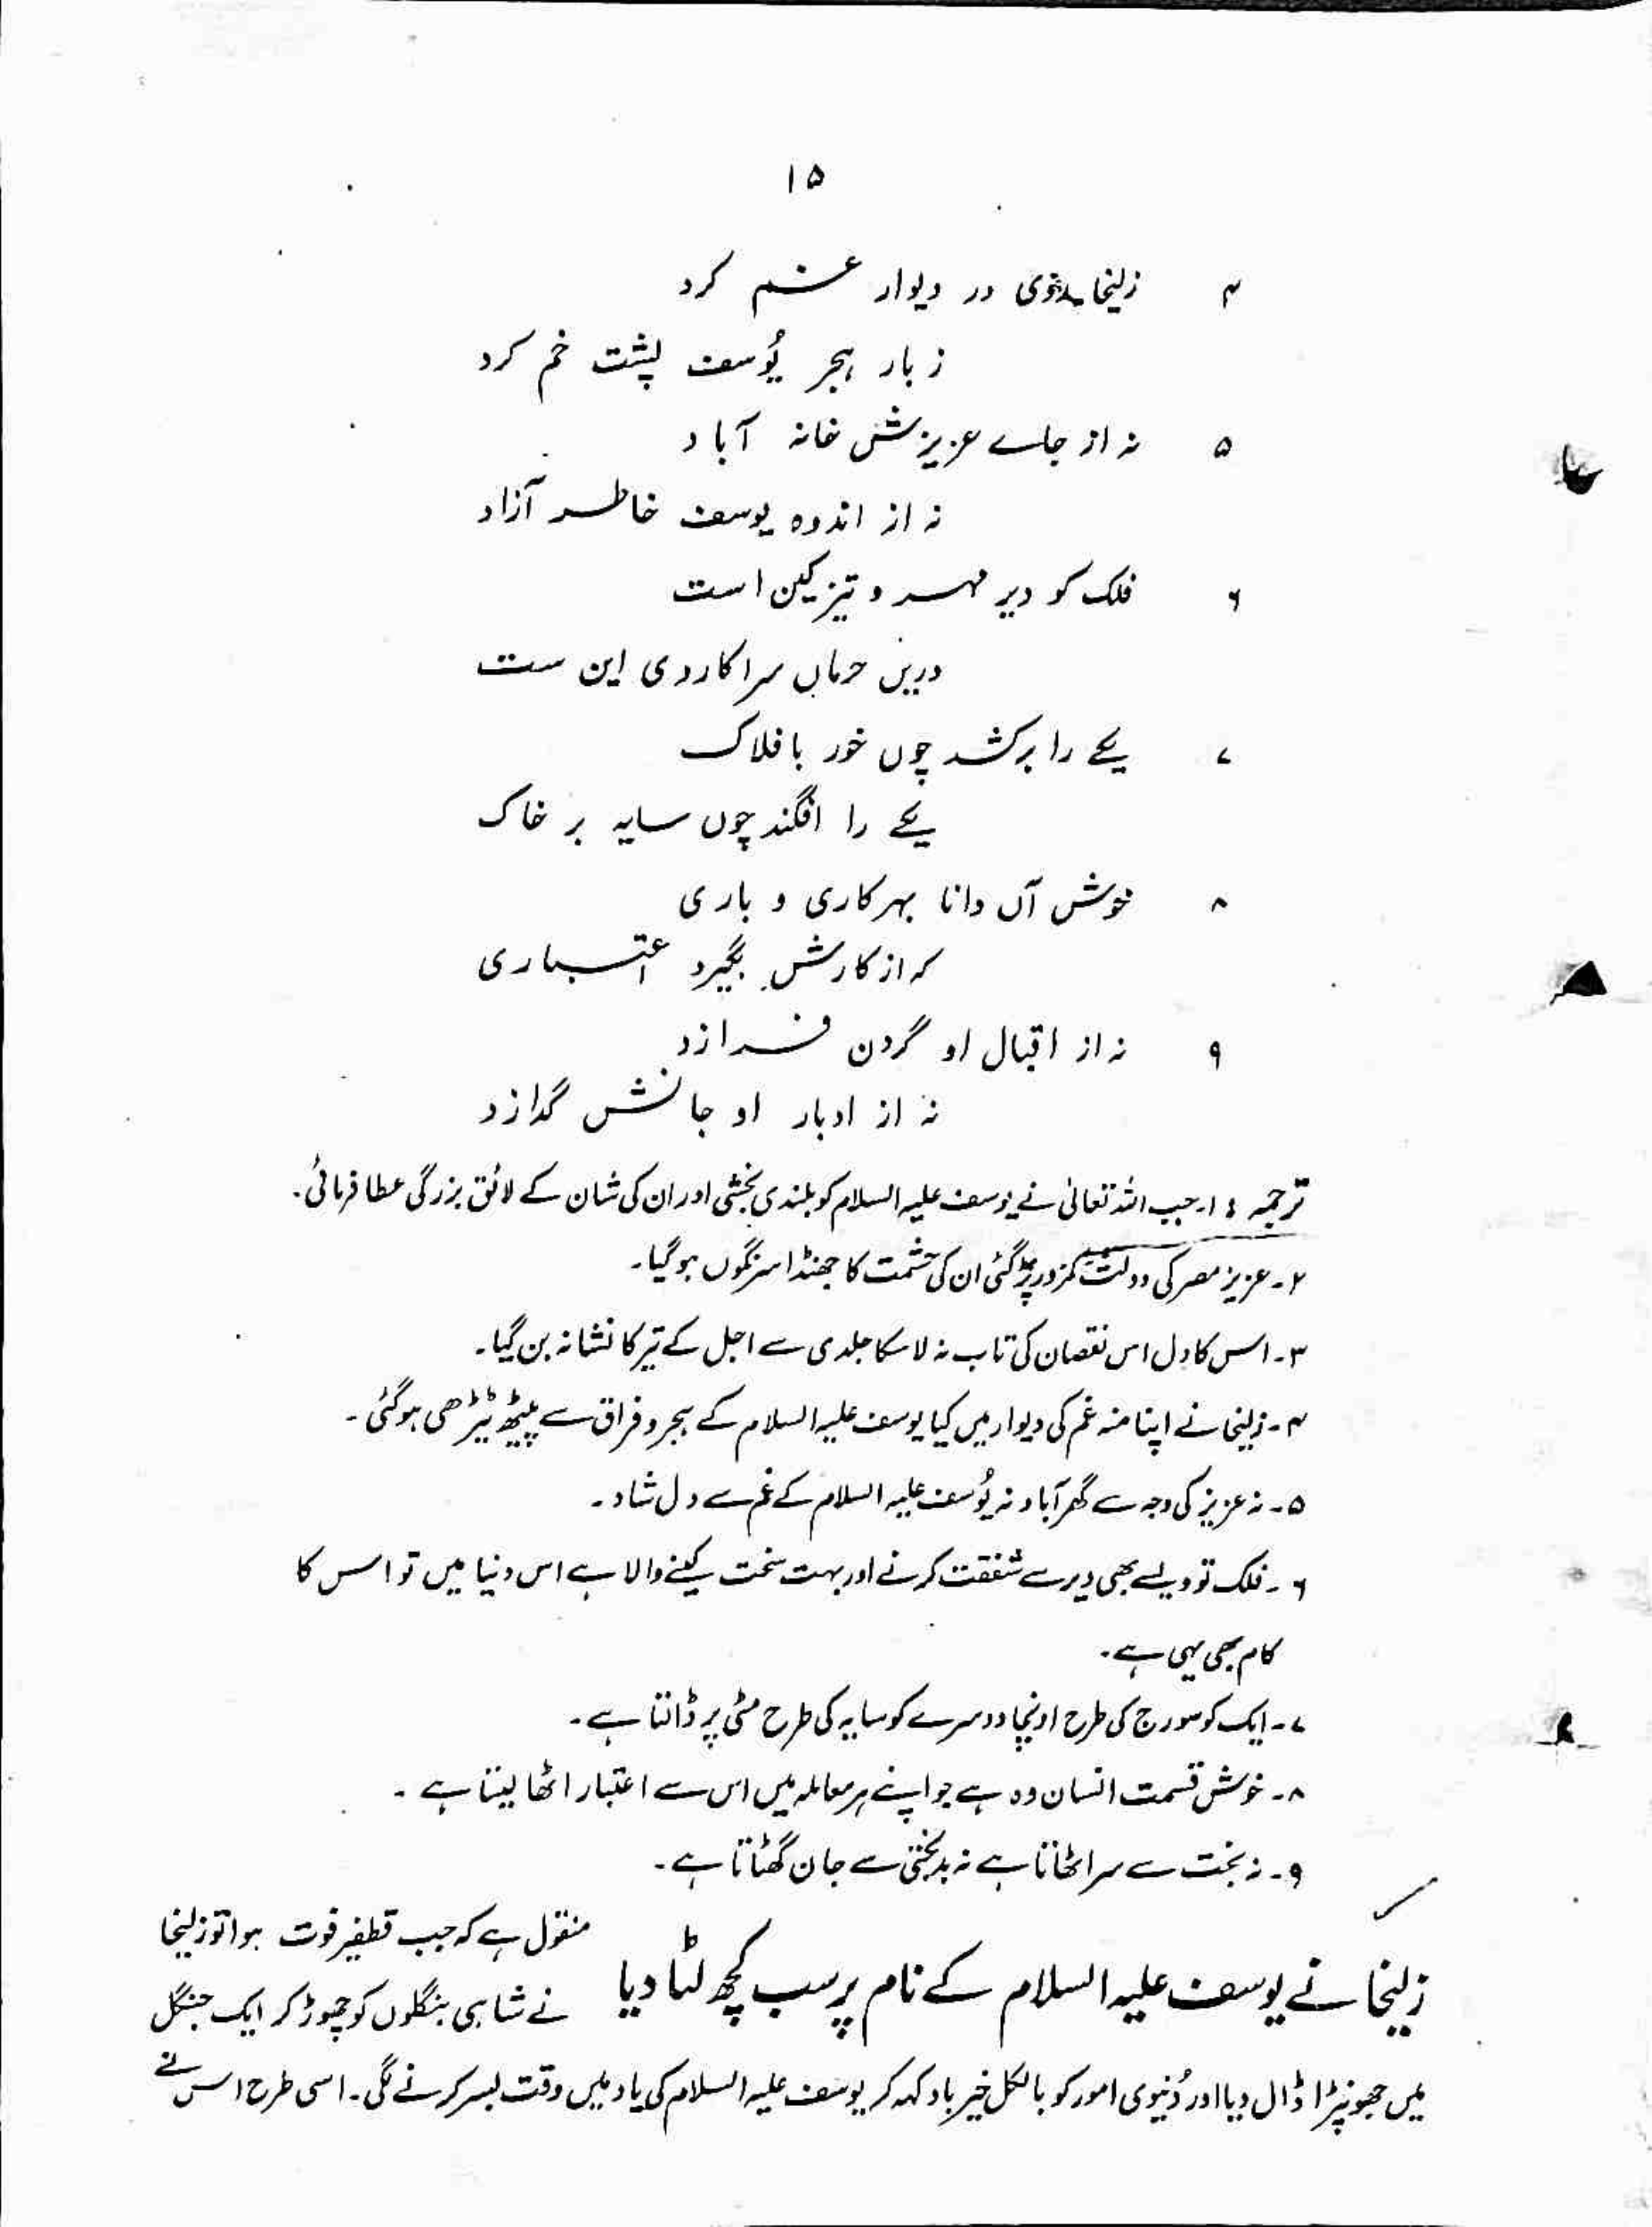 ۱۵
۴ زلیخا روی در دیوار غم کرد
ز بار ہجر یُوسف پشت خم کرد
۵ نہ از جاے عزیزش خانہ آباد
نہ از اندوہ یوسف خاطر آزاد
۶ فلک کو دیر مہر و تیز کین است
دریں حرماں سرا کار وی این ست
۷ یکے را برکشد چوں خور بافلاک
یکے را افگند چوں سایہ بر خاک
۸ خوش آں دانا بہر کاری و باری
کہ از کارش بگیرد اعتباری
۹ نہ از اقبال او گردن فرازد
نہ از ادبار او جانش گدازد
ترجمہ : ۱۔ جب اللہ تعالیٰ نے یوسف علیہ السلام کو بلندی بخشی اور ان کی شان کے لائق بزرگی عطا فرمائی۔
۲۔ عزیز مصر کی دولت کمزور پڑ گئی ان کی حشمت کا جھنڈا سرنگوں ہوگیا۔
۳۔ اس کا دل اس نقصان کی تاب نہ لا سکا جلدی سے اجل کے تیر کا نشانہ بن گیا۔
۴۔ زلیخا نے اپنا منہ غم کی دیوار میں کیا یوسف علیہ السلام کے ہجر و فراق سے پیٹھ ٹیڑھی ہوگئی۔
۵۔ نہ عزیز کی وجہ سے گھر آباد نہ یُوسف علیہ السلام کے غم سے دل شاد۔
۶۔ فلک تو ویسے بھی دیر سے شفقت کرنے اور بہت سخت کینے والا ہے اس دنیا میں تو اس کا
کام بھی یہی ہے۔
۷۔ ایک کو سورج کی طرح اونچا دوسرے کو سایہ کی طرح مٹی پر ڈالتا ہے۔
۸۔ خوش قسمت انسان وہ ہے جو اپنے ہر معاملہ میں اس سے اعتبار اٹھا لیتا ہے۔
۹۔ نہ بخت سے سر اٹھاتا ہے نہ بدبختی سے جان گھٹاتا ہے۔
زلیخا نے یوسف علیہ السلام کے نام پر سب کچھ لٹا دیا
منقول ہے کہ جب قطفیر فوت ہوا تو زلیخا
نے شاہی بنگلوں کو چھوڑ کر ایک جنگل
میں جھونپڑا ڈال دیا اور دُنیوی امور کو بالکل خیرباد کہہ کر یوسف علیہ السلام کی یاد میں وقت بسر کرنے لگی۔ اسی طرح اس نے